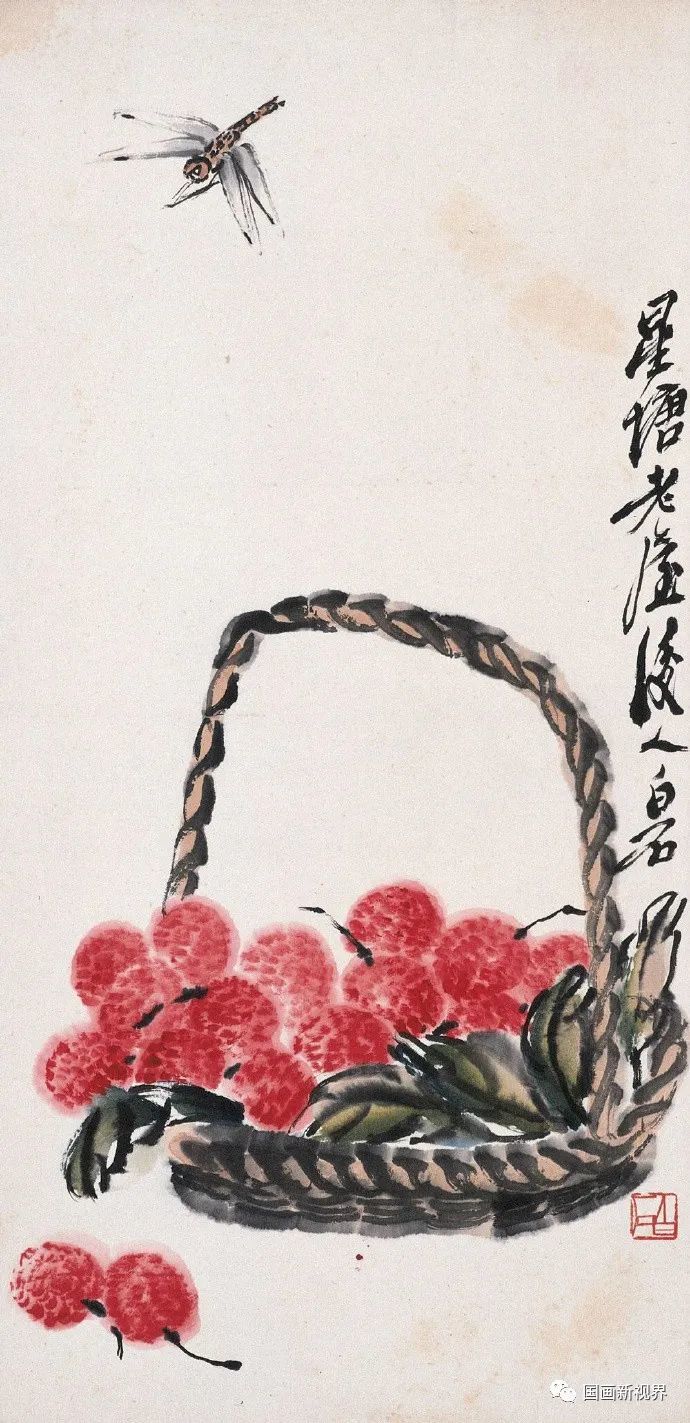 星塘老屋後人白石
白石
国画新视界